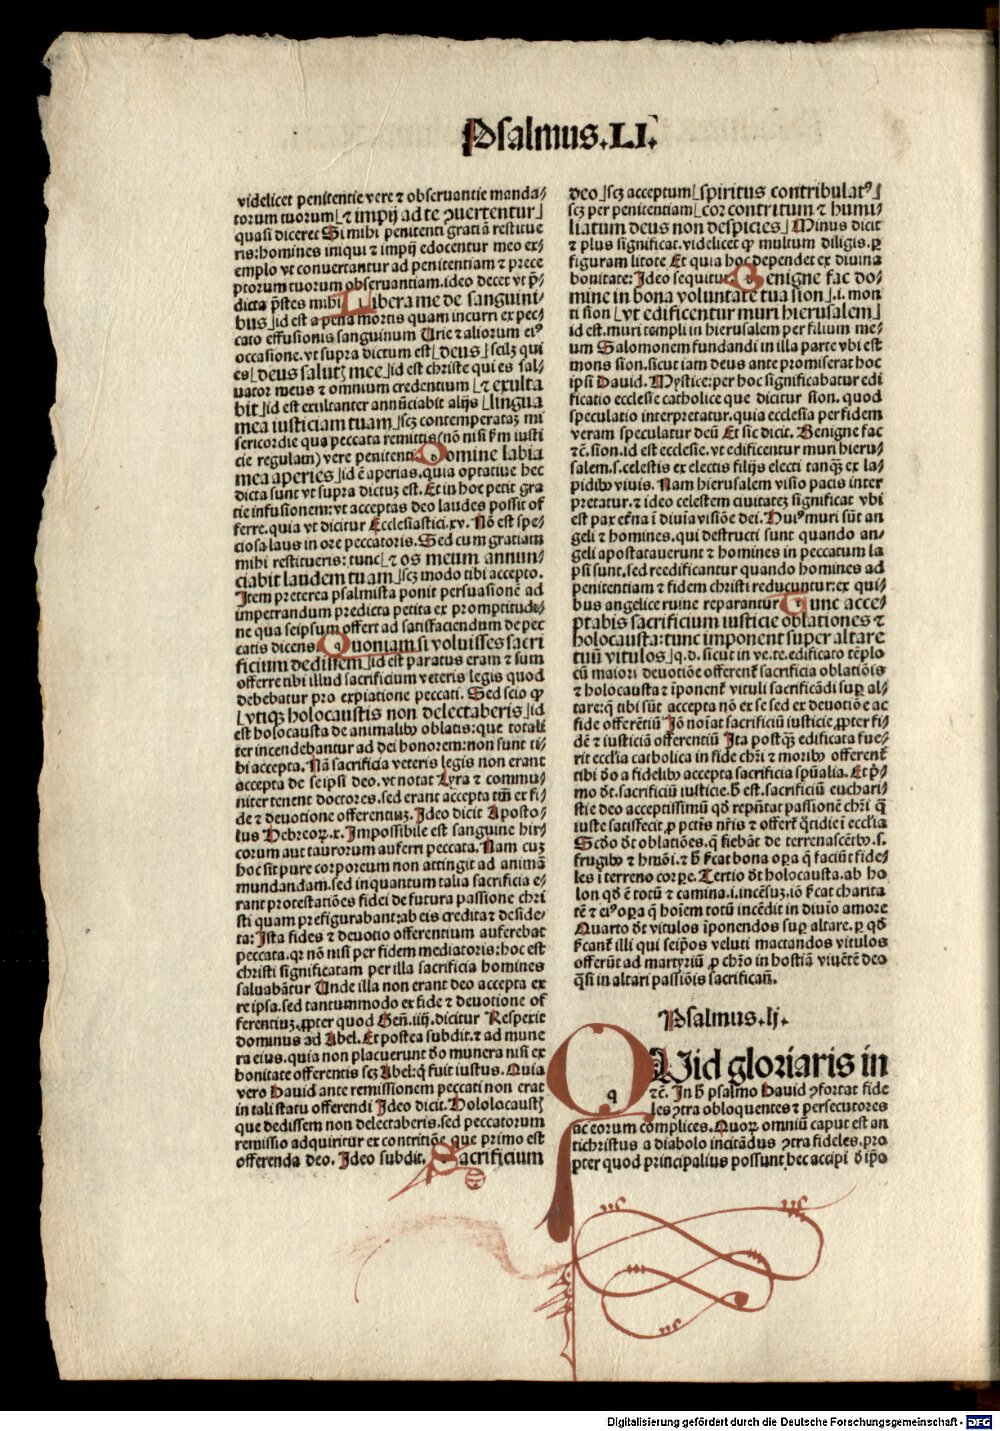 Psalmus.LI.
videlicet penitentie vere ⁊ obseruantie manda-
torum tuorum ⁊ impij ad te ꝯuertentur
quasi diceret Si mihi penitenti gratiā restitue
ris: homines iniqui ⁊ impij edocentur meo ex-
emplo vt conuertantur ad penitentiam ⁊ prece
ptorum tuorum obseruantiam. ideo decet vt p̄-
dicta p̄stes mihi Libera me de sanguini-
bus id est a pena mortis quam incurri ex pec-
cato effusionis sanguinum Urie ⁊ aliorum eiꝰ
occasione. vt supra dictum est deus scilꝫ qui
es deus salutꝭ mee id est christe qui es sal-
uator meus ⁊ omnium credentium ⁊ exulta
bit id est exultanter annūciabit alijs lingua
mea iusticiam tuam scꝫ contemperataꝫ mi
sericordie qua peccata remittis (nō nisi ẜm iusti
cie regulam) vere penitenti Domine labia
mea aperies id ē aperias. quia optatiue hec
dicta sunt vt supra dictuꝫ est. Et in hoc petit gra
tie infusionem: vt acceptas deo laudes possit of
ferre. quia vt dicitur Ecclesiastici. xv. Nō est spe-
ciosa laus in ore peccatoris. Sed cum gratiam
mihi restitueris: tunc ⁊ os meum annun-
ciabit laudem tuam scꝫ modo tibi accepto.
Item preterea psalmista ponit persuasionē ad
impetrandum predicta petita ex promptitudi-
ne qua seipsum offert ad satisfaciendum de pec
catis dicens. Quoniam si voluisses sacri
ficium dedissem id est paratus eram ⁊ sum
offerre tibi illud sacrificium veteris legis quod
debebatur pro expiatione peccati. Sed scio ꝙ
vtiqꝫ holocaustis non delectaberis id
est holocausta de animalibꝰ oblatis: que totali
ter incendebantur ad dei honorem: non sunt ti-
bi accepta. Nā sacrificia veteris legis non erant
accepta de se ipsi deo. vt notat Lyra ⁊ commu-
niter tenent doctores. sed erant accepta tm̄ ex fi-
de ⁊ deuotione offerentiuꝫ. Ideo dicit Aposto-
lus Hebreoꝝ. x. Impossibile est sanguine hir-
corum aut taurorum auferri peccata. Nam cuꝫ
hoc sit pure corporeum non attingit ad animā
mundandam. sed inquantum talia sacrificia e-
rant protestatiōes fidei de futura passione chri
sti quam prefigurabant: ab eis credita ⁊ deside-
ta: Ista fides ⁊ deuotio offerentium auferebat
peccata. qꝛ nō nisi per fidem mediatoris: hoc est
christi significatam per illa sacrificia homines
saluabātur Unde illa non erant deo accepta ex
re ipsa. sed tantummodo ex fide ⁊ deuotione of
ferentiuꝫ. ꝓpter quod Geñ. iiij. dicitur Respexit
dominus ad Abel. Et postea subdit. ⁊ ad mune
ra eius. quia non placuerunt dō munera nisi ex
bonitate offerentis scꝫ Abel: q̄ fuit iustus. Quia
vero Dauid ante remissionem peccati non erat
in tali statu offerendi Ideo dicit. Hololocaustꝭ
que dedissem non delectaberis. sed peccatorum
remissio adquiritur ex contritiōe que primo est
offerenda deo. Ideo subdit. Sacrificium
deo scꝫ acceptum spiritus contribulatꝰ
scꝫ per penitentiam cor contritum ⁊ humi-
liatum deus non despicies Minus dicit
⁊ plus significat. videlicet ꝙ multum diligis. ꝑ
figuram litote Et quia hoc dependet ex diuina
bonitate: Ideo sequitur. Benigne fac do-
mine in bona voluntate tua sion .i. mon
ti sion vt edificentur muri hierusalem
id est. muri templi in hierusalem per filium me-
um Salomonem fundandi in illa parte vbi est
mons sion. sicut iam deus ante promiserat hoc
ipsi Dauid. Mystice: per hoc significabatur edi
ficatio ecclesie catholice que dicitur sion. quod
speculatio interpretatur. quia ecclesia per fidem
veram speculatur deū Et sic dicit. Benigne fac
⁊cē. sion. id est ecclesie. vt edificentur muri hieru-
salem. s. celestis ex electis filijs electi tanqꝫ ex la-
pidibꝰ viuis. Nam hierusalem visio pacis inter
pretatur. ⁊ ideo celestem ciuitateꝫ significat vbi
est pax et̄na ī diuīa visiōe dei. Huiꝰ muri sūt an
geli ⁊ homines. qui destructi sunt quando an-
geli apostatauerunt ⁊ homines in peccatum la
psi sunt. sed reedificantur quando homines ad
penitentiam ⁊ fidem christi reducuntur: ex qui-
bus angelice ruine reparantur Tunc acce-
ptabis sacrificium iusticie oblationes ⁊
holocausta: tunc imponent super altare
tuū vitulos q. d. sicut in ve. te. edificato tēplo
cū maiori deuotiōe offerent̄ sacrificia oblatiōis
⁊ holocausta ⁊ īponent̄ vituli sacrificādi suꝑ al-
tare: q̄ tibi sūt accepta nō ex se sed ex deuotiōe ac
fide offerētiū Iō noīat sacrificiū iusticie, ꝓpter fi-
dē ⁊ iusticiā offerentiū Ita postqꝫ edificata fue-
rit eccl̄ia catholica in fide chr̄i ⁊ moribꝰ offerent̄
tibi dō a fidelibꝰ accepta sacrificia spūalia. Et p̄-
mo dt̄. sacrificiū iusticie. h̄ est. sacrificiū euchari-
stie deo acceptissimū qd̄ rep̄ntat passionē chr̄i q̄
iuste satisfecit, ꝓ pctīs nr̄is ⁊ offert̄ q̄tidie ī eccl̄ia
Scdō dt̄ oblatiōes. q̄ fiebāt de terrenascētibꝰ. s.
frugibꝰ ⁊ hmōi. ⁊ h̄ ẜcat bona oꝑa q̄ faciūt fide-
les i terreno corpe. Tertio dt̄ holocausta. ab ho
lon qd̄ ē totū ⁊ camina .i. incēsuꝫ. iō ẜcat charita
tē ⁊ eiꝰ oꝑa q̄ hoīem totū incēdit in diuīo amore
Quarto dt̄ vitulos īponendos suꝑ altare. ꝑ qd̄
ẜcant̄ illi qui seip̄os veluti mactandos vitulos
offerūt ad martyriū ꝓ chr̄o in hostiā viuētē deo
q̄si in altari passiōis sacrificañ.
Psalmus. lij.
QUid gloriaris in
⁊cē. In h̄ psalmo Dauid ꝯfortat fide
les ꝯtra obloquentes ⁊ persecutores
ac eorum complices. Quoꝝ omniū caput est an
tichristus a diabolo incitādus ꝯtra fideles. pro
pter quod principalius possunt hec accipi d̄ ip̄o
Digitalisierung gefördert durch die Deutsche Forschungsgemeinschaft - DFG